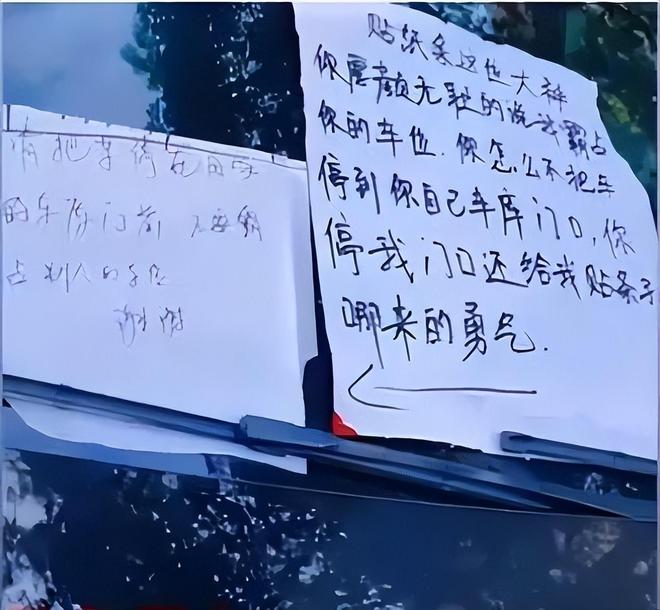 请把车停在自家
的车库门前 不要霸
占别人的车位
谢谢
贴纸条这位大神
你厚颜无耻的说我霸占
你的车位.你怎么不把车
停到你自己车库门口,你
停我门口还给我贴条子
哪来的勇气.